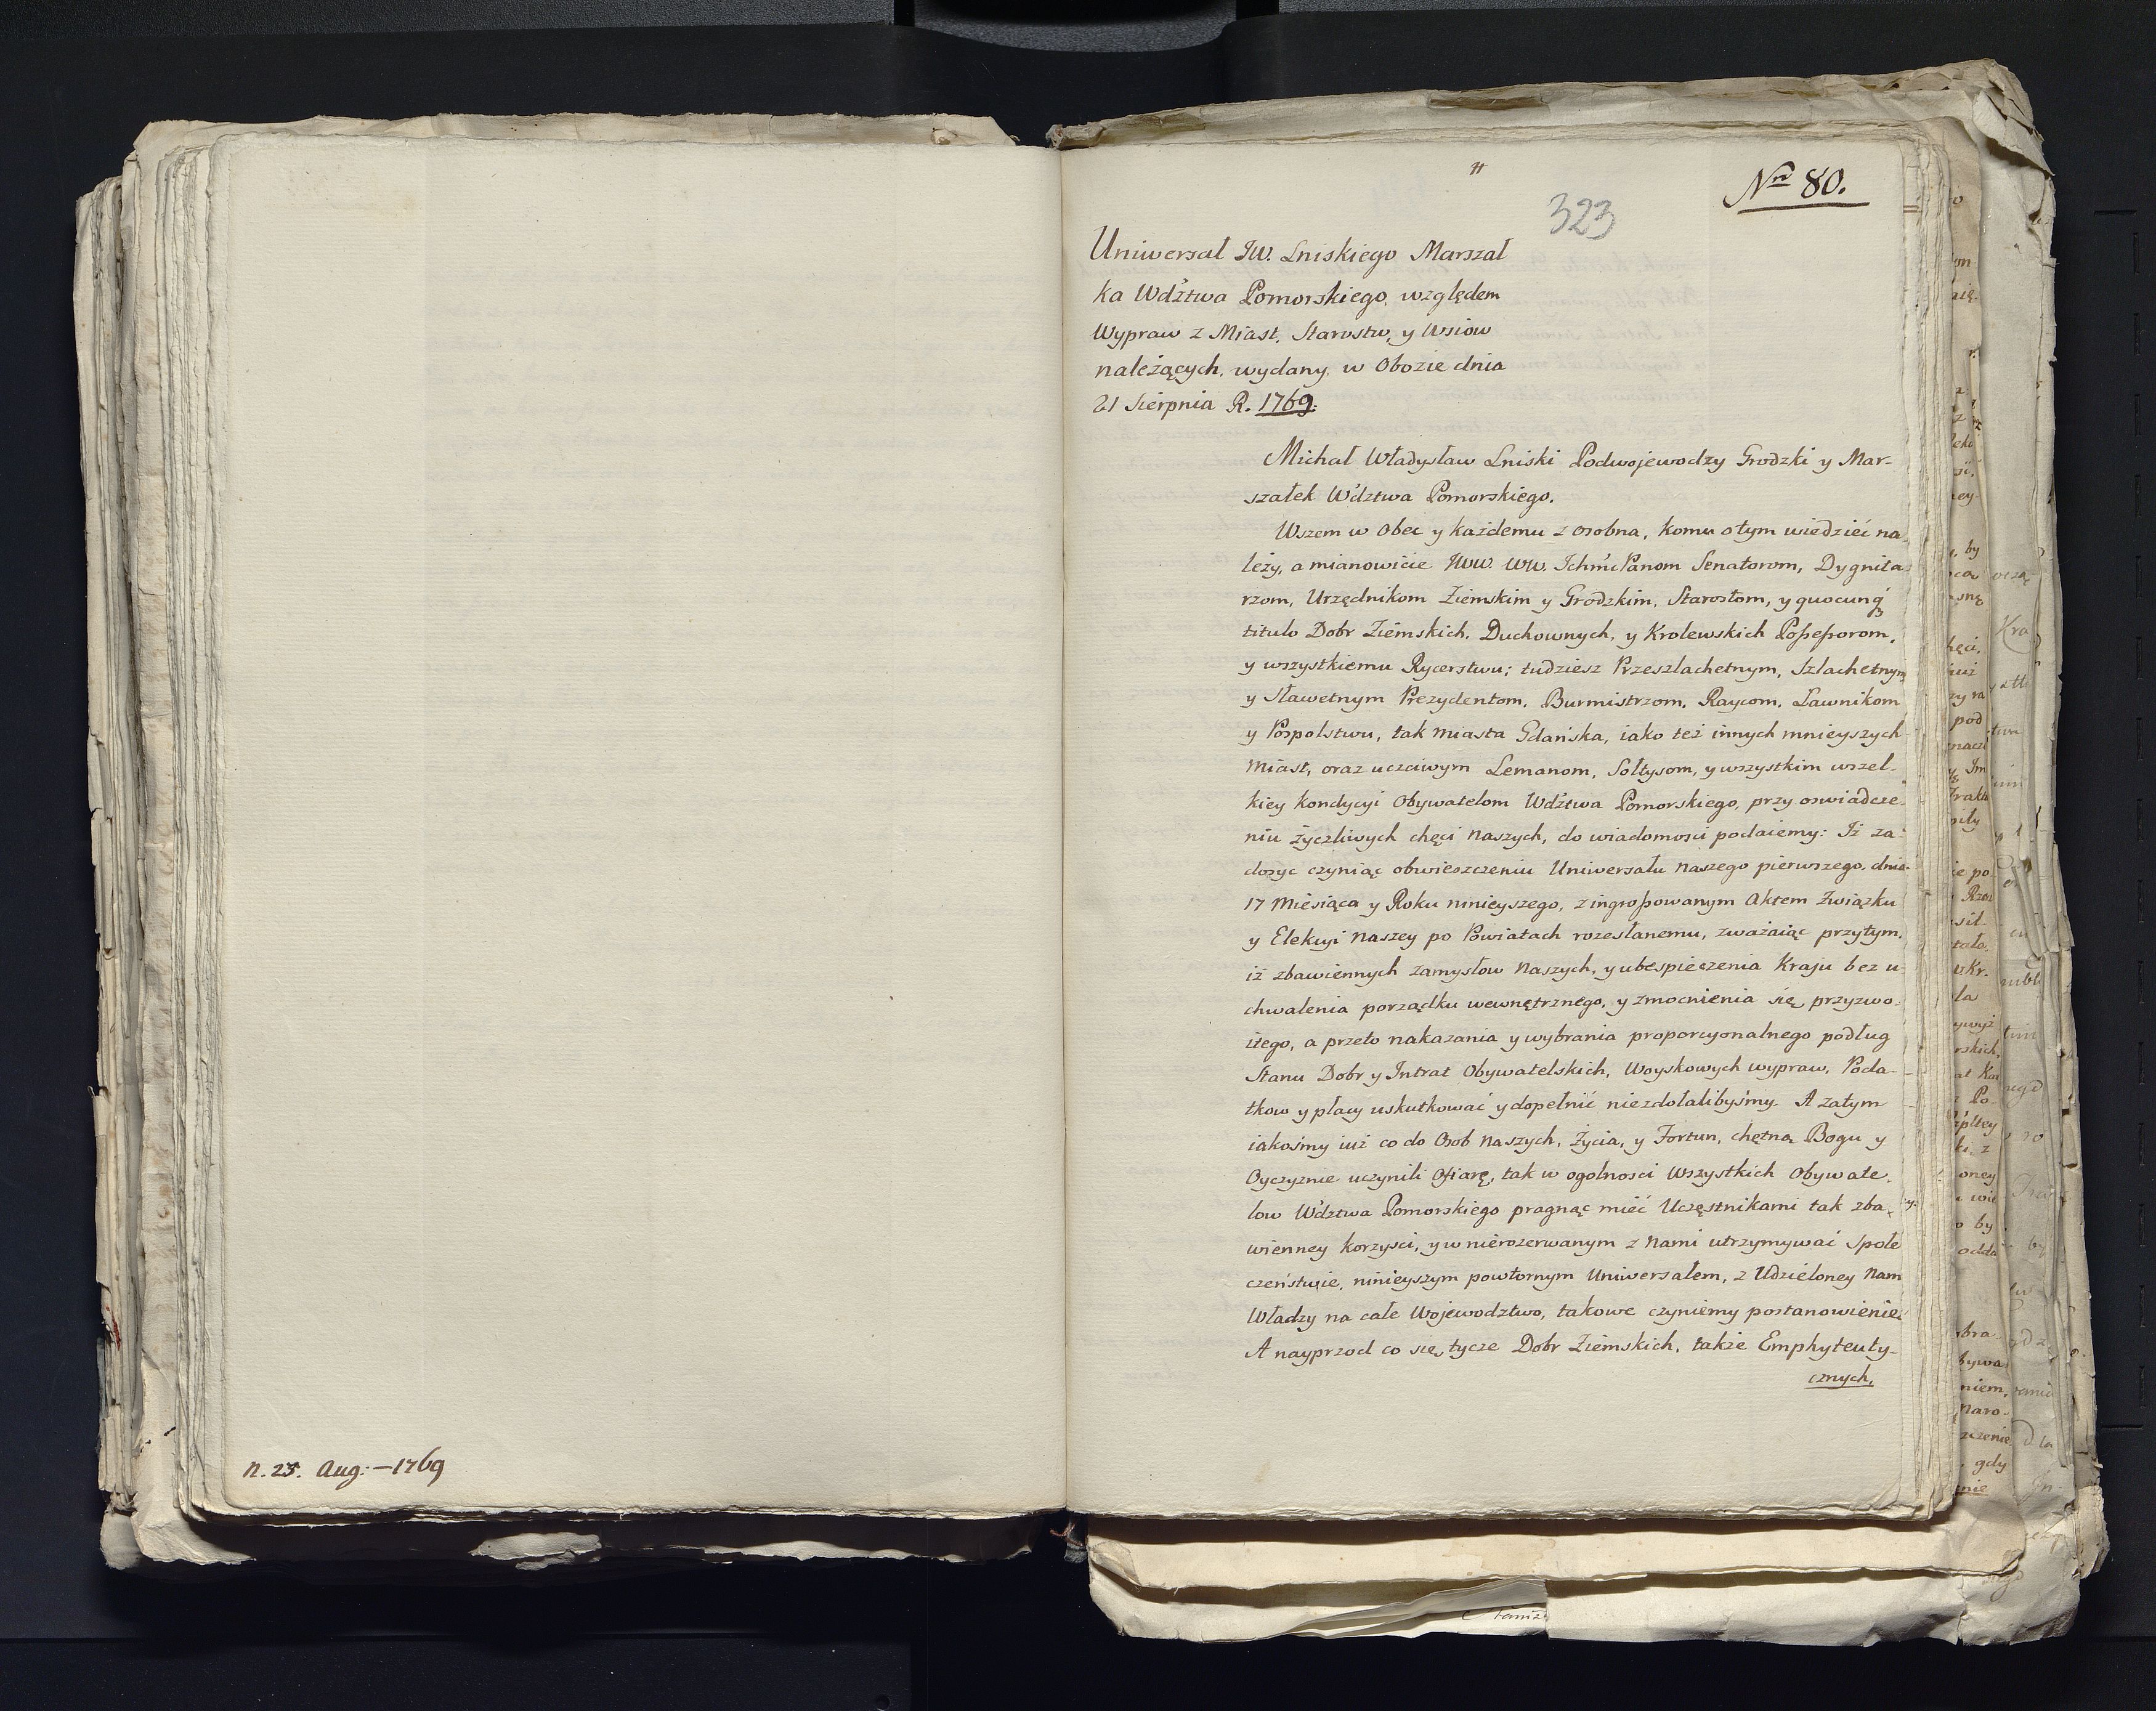 n. 25. Aug: — 1769
Nro 80.
323
Uniwersał JW. Lniskiego Marszał
ka Wdztwa Pomorskiego, względem
Wypraw z Miast, Starostw, y Wsiow
należących, wydany, w Obozie dnia
21 Sierpnia R. 1769.
Michał Władysław Lniski Podwojewodzy Grodzki y Mar-
szałek Wdztwa Pomorskiego.
Wszem w Obec y każdemu z osobna, komu o tym wiedzieć na-
leży, a mianowicie JWW. WW. Ichmć Panom Senatorom, Dygnita-
rzom, Urzędnikom Ziemskim y Grodzkim, Starostom, y quocunq
titulo Dobr Ziemskich, Duchownych, y Krolewskich Possessorom,
y wszystkiemu Rycerstwu; tudziesz Przeszlachetnym, Szlachetnym
y Sławetnym Prezydentom, Burmistrzom, Raycom, Ławnikom
y Pospolstwu, tak Miasta Gdańska, iako też innych mnieyszych
Miast, oraz uczciwym Lemanom, Soltysom, y wszystkim wszel-
kiey kondycyi Obywatelom Wdztwa Pomorskiego, przy oswiadcze-
niu życzliwych chęci Naszych, do wiadomosci podaiemy: Iż za-
dosyc czyniąc obwieszczeniu Uniwersału Naszego pierwszego, dnia
17 Miesiąca y Roku ninieyszego, z ingrossowanym Aktem Związku
y Elekcyi Naszey po Powiatach rozesłanemu, zważaiąc przytym,
iż zbawiennych zamysłow Naszych, y ubespieczenia Kraju bez u-
chwalenia porządku wewnętrznego, y zmocnienia się przyzwo-
itego, a przeto nakazania y wybrania proporcyonalnego podług
Stanu Dobr y Intrat Obywatelskich, Woyskowych wypraw, Poda-
tkow y płacy uskutkować y dopełnić niezdołalibyśmy. A zatym
iakośmy iuż co do Osob Naszych, Życia, y Fortun, chętną Bogu y
Oyczyznie uczynili Ofiarę, tak w ogolnosci Wszystkich Obywate-
low Wdztwa Pomorskiego pragnąc mieć Uczęstnikami tak zba-
wienney korzysci, y w nierozerwanym z Nami utrzymywać Społe
czeństwie, ninieyszym powtornym Uniwersałem, z Udzieloney Nam
Władzy na całe Wojewodztwo, takowe czyniemy postanowienie.
A nayprzod co się tycze Dobr Ziemskich, także Emphyteuty-
cznych,